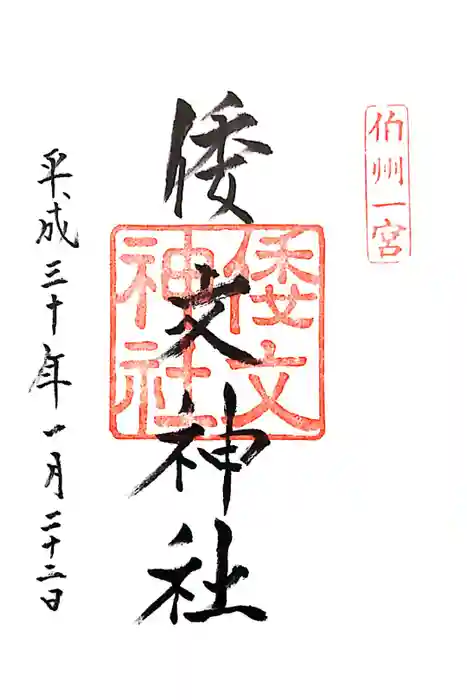 伯州一宮
倭文神社
倭文神社
平成三十年一月二十二日